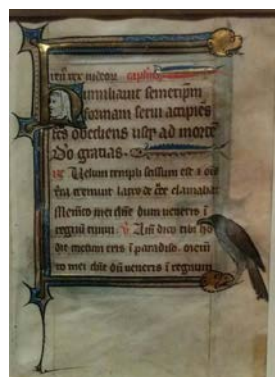 rex iudeorū
Humiliauit semetipm
formam serui accipiēs
obediens usqȝ ad mortē
Do gratias.
Uelum templi scissum est & ois
tra tremuit latro de cͬce clamabat
Memēto mei dn̄e dum ueneris ī
regnū tuum. ℣ Am̄ dico tibi ho
die mecum eris ī paradiso. memē
to mei dn̄e dū ueneris ī regnum